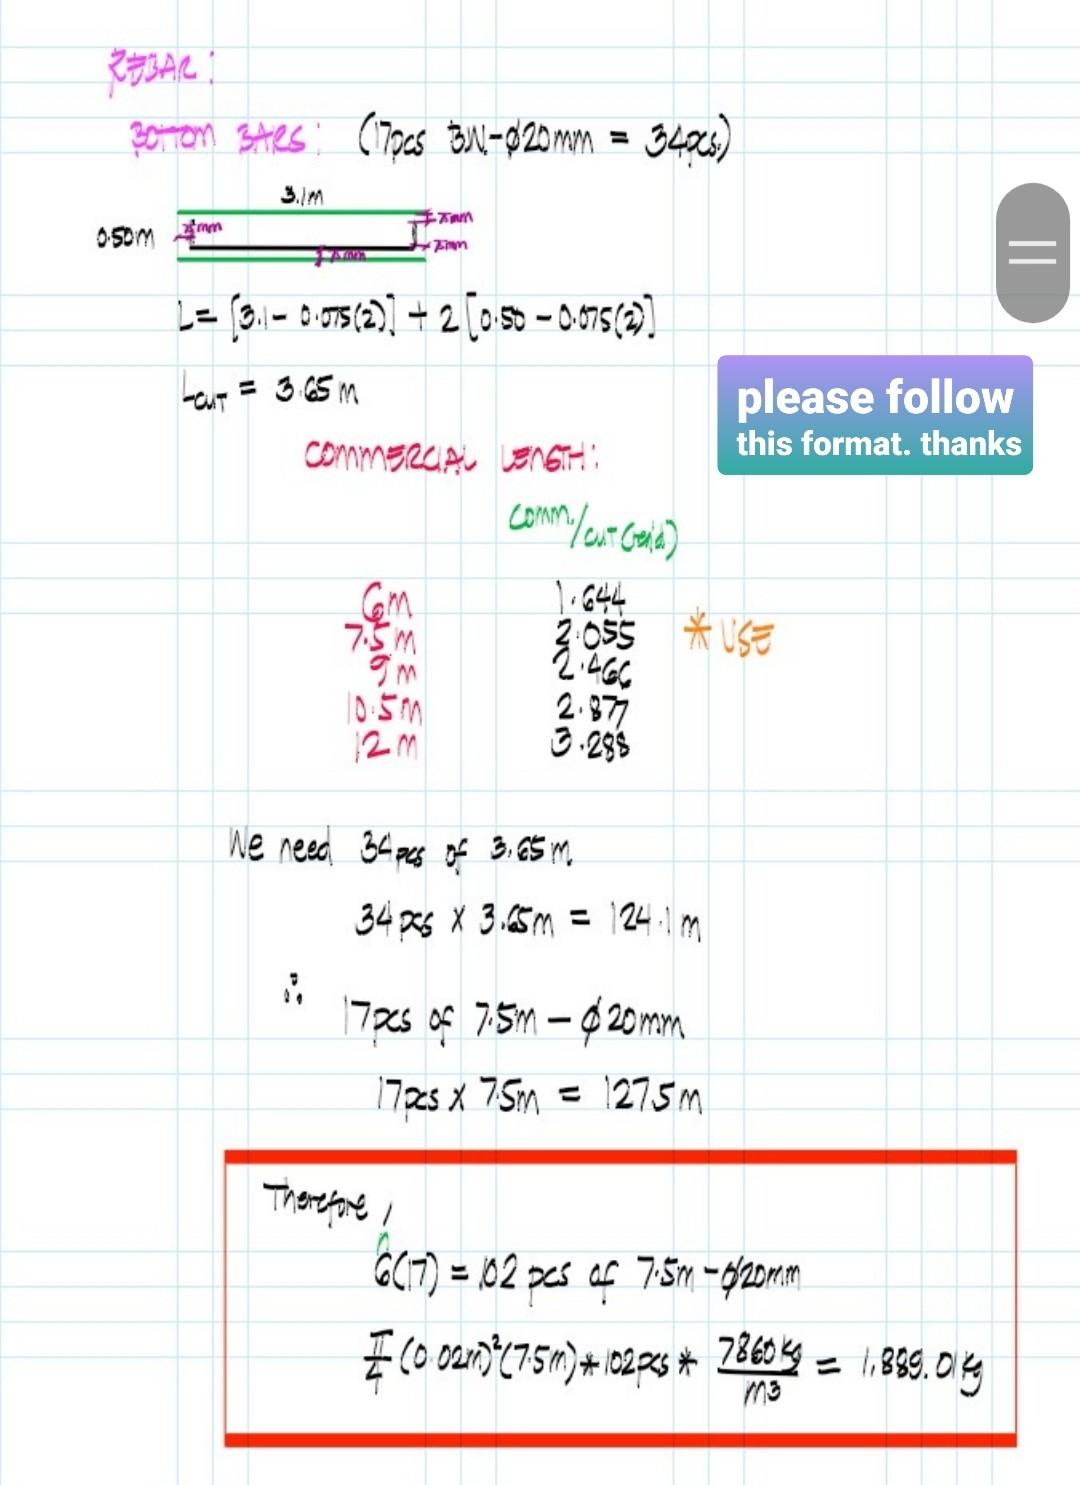 REBAR:
BOTTOM BARS: (17pcs BW-φ20mm = 34pcs.)
3.1m
0.50m
75mm
75mm
75mm
75mm
L= [3.1- 0.075(2)] + 2[0.50 - 0.075(2)]
LCUT = 3.65m
please follow
this format. thanks
COMMERCIAL LENGTH:
comm./cut
6m 1.644
7.5m 2.055 * USE
9m 2.466
10.5m 2.877
12m 3.288
We need 34pcs of 3.65m
34pcs x 3.65m = 124.1m
∴ 17pcs of 7.5m - φ20mm
17pcs x 7.5m = 127.5m
Therefore,
6(17) = 102 pcs of 7.5m - φ20mm
π/4 (0.02m)²(7.5m)*102pcs * 7860kg/m3 = 1,889.01kg